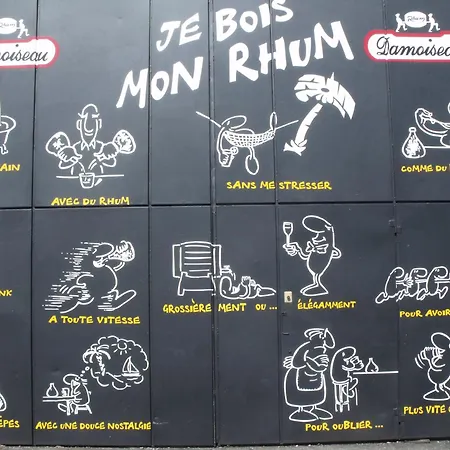 Rhum
moiseau
JE BOIS
MON RHUM
Rhum
Damoiseau
AIN
AVEC DU RHUM
SANS ME STRESSER
COMME DU
NK
A TOUTE VITESSE
GROSSIÈREMENT OU...
ÉLÉGAMMENT
POUR AVOIR
ÊPES
AVEC UNE DOUCE NOSTALGIE
POUR OUBLIER...
PLUS VITE